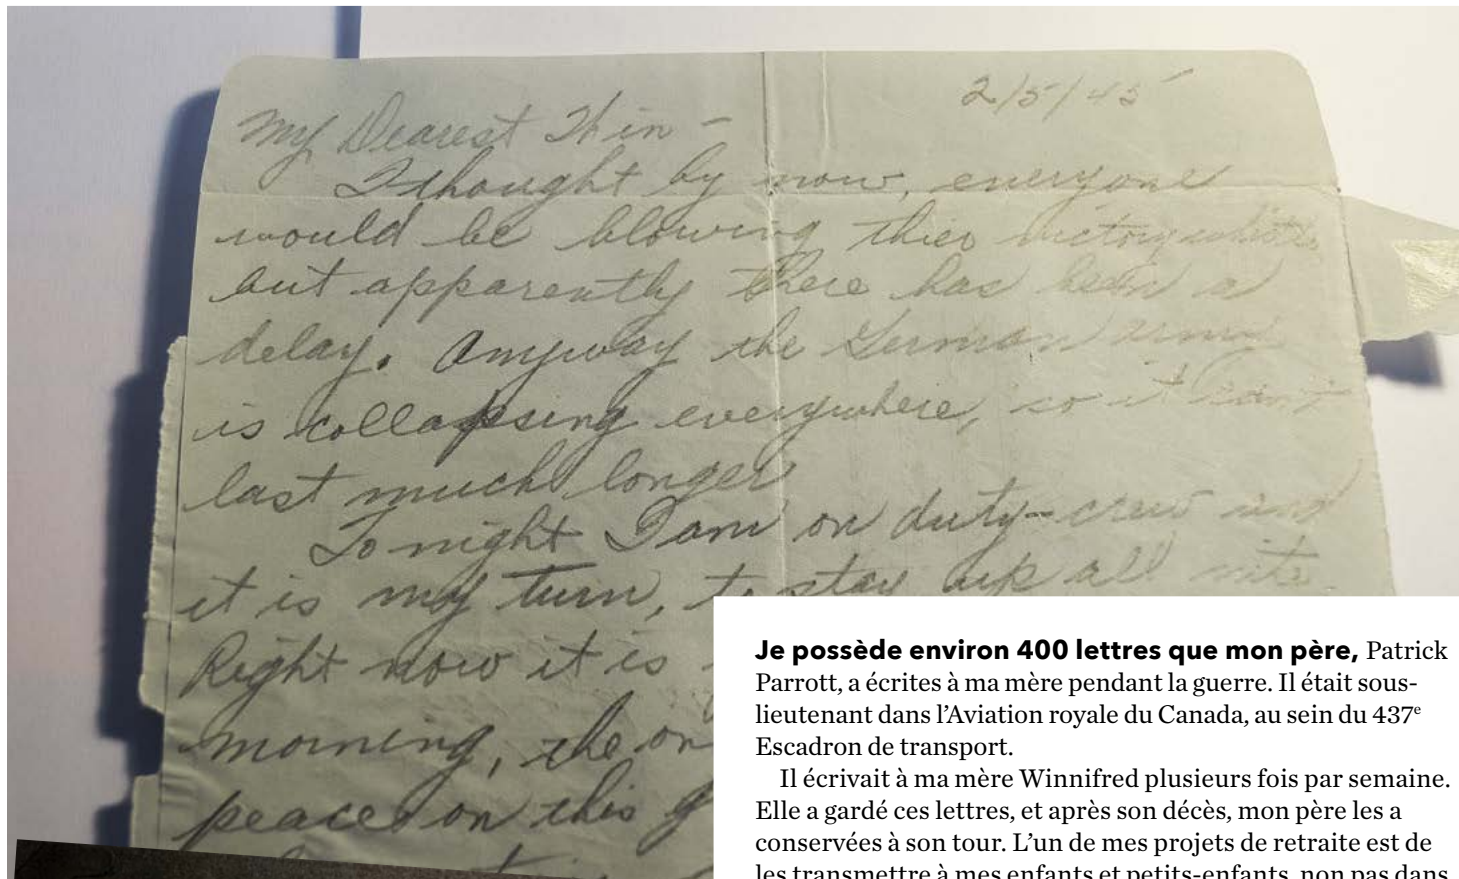 2/5/45
My Dearest Win -
I thought by now, everyone
would be blowing thier victory whistle
but apparently there has been a
delay. Anyway the German army
is collapsing everywhere, so it can't
last much longer
Tonight I am on duty-crew and
it is my turn, to stay up all nite.
Right now it is
morning, the on
peace on this g
Je possède environ 400 lettres que mon père, Patrick
Parrott, a écrites à ma mère pendant la guerre. Il était sous-
lieutenant dans l'Aviation royale du Canada, au sein du 437e
Escadron de transport.
Il écrivait à ma mère Winnifred plusieurs fois par semaine.
Elle a gardé ces lettres, et après son décès, mon père les a
conservées à son tour. L'un de mes projets de retraite est de
les transmettre à mes enfants et petits-enfants, non pas dans